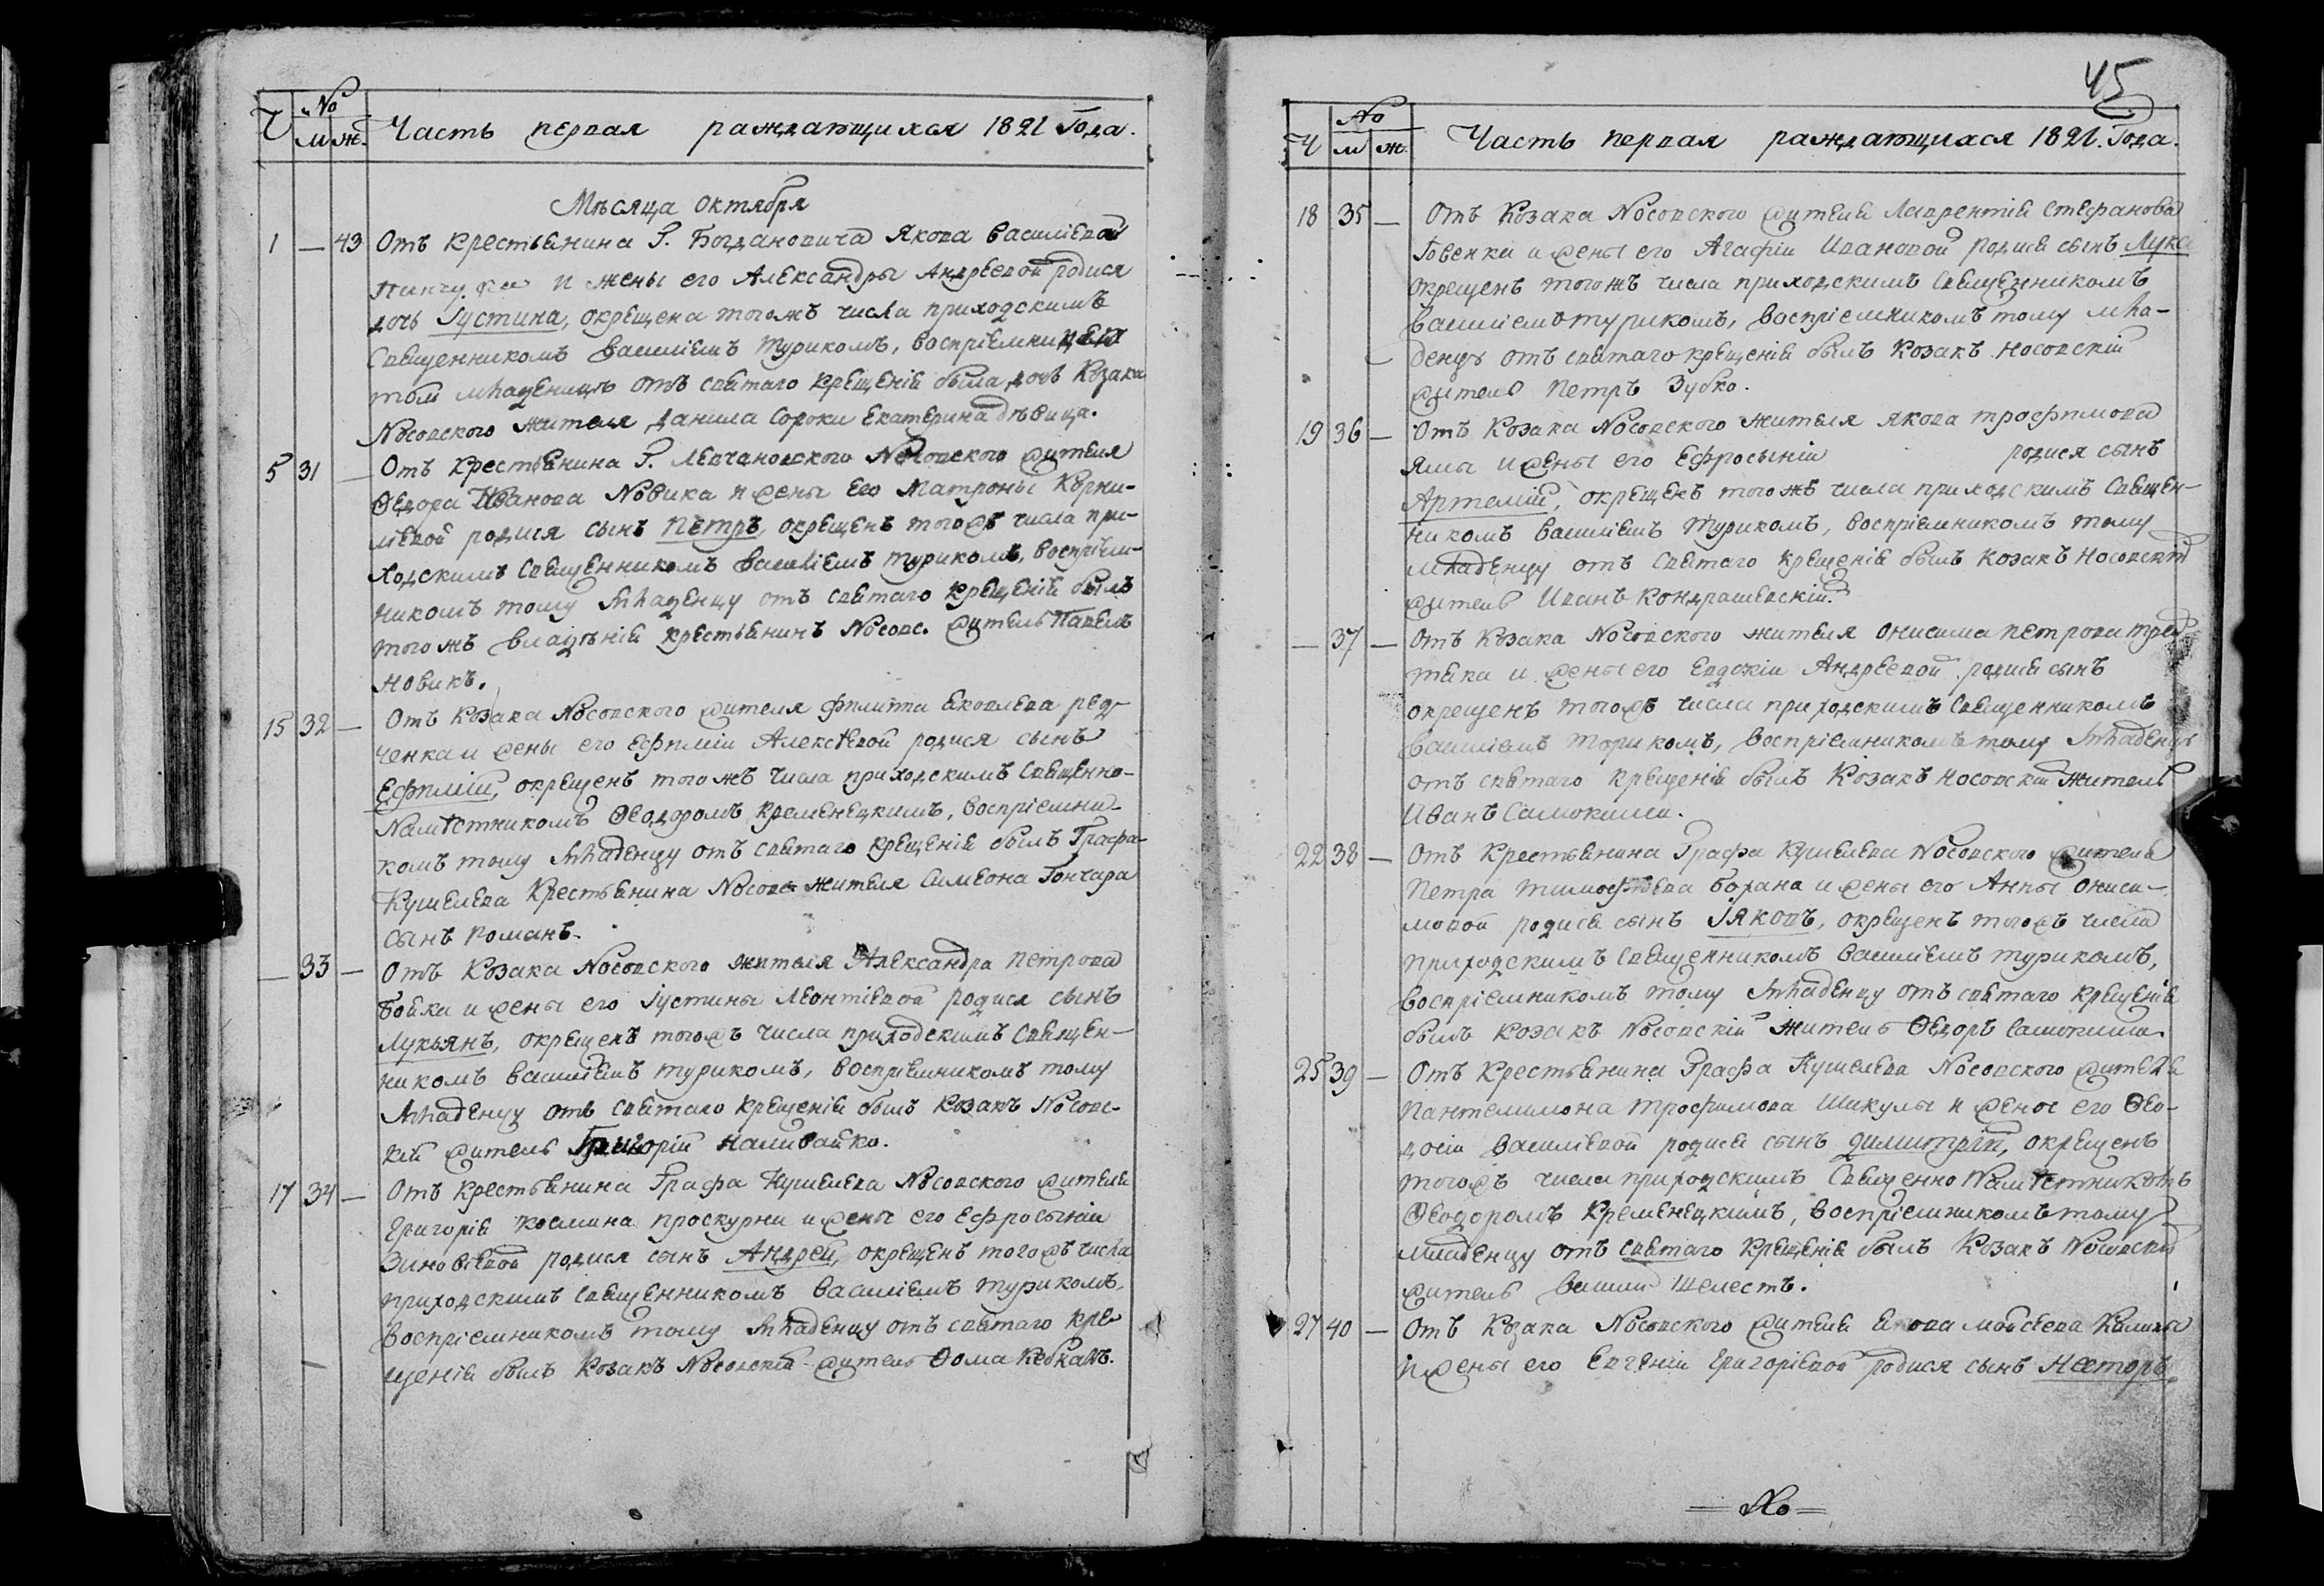 Ч № м ж. Часть первая раждающихся 1821 Года.
Мѣсяца Октября
1 — 43 Отъ крестьянина Г. Богдановича Якова Василіева
и жены его Александры Андреевой родися
дочь Іустина, окрещена тогожъ числа приходскимъ
Священникомъ Василіемъ Турикомъ, воспріемницею
той младеницѣ отъ святаго крещенія была дочь Козака
Носовского жителя Данила Сороки Екатерина дѣвица.
5 31 — Отъ крестьянина Г. Левчановского Носовского жителя
Ѳедора Иванова Новика и жены его Матроны Корни-
ліевой родися сынъ Петръ, окрещенъ тогожъ числа при-
ходскимъ Священникомъ Василіемъ Турикомъ, воспріем-
никомъ тому младенцу отъ святаго крещенія былъ
того жъ владѣнія крестьянинъ Носовс. житель Павелъ
Новикъ.
15 32 — Отъ Козака Носовского жителя Филиппа Яковлева Ред-
ченка и жены его Ефиміи Алексѣевой родися сынъ
Ефимій, окрещенъ того жъ числа приходскимъ Священно-
Намѣстникомъ Ѳеодоромъ Кременецкимъ, воспріемни-
комъ тому младенцу отъ святаго крещенія былъ Графа
Кушелева Крестьянина Носовс. жителя Симеона Гончара
сынъ Романъ.
— 33 — Отъ Козака Носовского жителя Александра Петрова
Бойка и жены его Іустины Леонтіевой родися сынъ
Лукьянъ, окрещенъ тогожъ числа приходскимъ Священ-
никомъ Василіемъ Турикомъ, воспріемникомъ тому
младенцу отъ святаго крещенія былъ Козакъ Носовс-
кій житель Григорій Наливайко.
17 34 — Отъ крестьянина Графа Кушелева Носовского жителя
Григорія Космина Проскурни и жены его Ефросыніи
Зиновіевой родися сынъ Андрей, окрещенъ тогожъ числа
приходскимъ Священникомъ Василіемъ Турикомъ,
воспріемникомъ тому младенцу отъ святаго кре-
щенія былъ Козакъ Носовскій житель Ѳома Кебкалъ.
45
Ч № м ж. Часть первая раждающихся 1821. Года.
18 35 — Отъ Козака Носовского жителя Лаврентія Стефанова
Говенки и жены его Агафіи Ивановой родися сынъ Лука
окрещенъ тогожъ числа приходскимъ Священникомъ
Василіемъ Турикомъ, воспріемникомъ тому мла-
денцу отъ святаго крещенія былъ Козакъ Носовскій
житель Петръ Зубко.
19 36 — Отъ Козака Носовского жителя Якова Трофимова
Ямы и жены его Ефросыніи родися сынъ
Артемій, окрещенъ того жъ числа приходскимъ Священ-
никомъ Василіемъ Турикомъ, воспріемникомъ тому
младенцу отъ святаго крещенія былъ Козакъ Носовскій
житель Иванъ Кондрашевскій.
— 37 — Отъ Козака Носовского жителя Онисима Петрова Трет
тяка и жены его Евдокіи Андреевой родися сынъ
окрещенъ тогожъ числа приходскимъ Священникомъ
Василіемъ Турикомъ, воспріемникомъ тому младенцу
отъ святаго крещенія былъ Козакъ Носовскій житель
Иванъ Самокиша.
22 38 — Отъ Крестьянина Графа Кушелева Носовского жителя
Петра Тимофѣева Борана и жены его Анны Ониси-
мовой родися сынъ Іяковъ, окрещенъ тогожъ числа
приходскимъ Священникомъ Василіемъ Турикомъ,
воспріемникомъ тому младенцу отъ святаго крещенія
былъ Козакъ Носовскій житель Ѳедоръ Самокиша.
25 39 — Отъ Крестьянина Графа Кушелева Носовского жителя
Пантелимона Трофимова Шикулы и жены его Ѳео-
досіи Василіевой родися сынъ Димитрій, окрещенъ
тогожъ числа приходскимъ Священно Намѣстникомъ
Ѳеодоромъ Кременецкимъ, воспріемникомъ тому
младенцу отъ святаго крещенія былъ Козакъ Носовскій
житель Василій Шелестъ.
27 40 — Отъ Козака Носовского жителя Якова Мойсеева Калины
и жены его Евгеніи Григоріевой родися сынъ Несторъ,